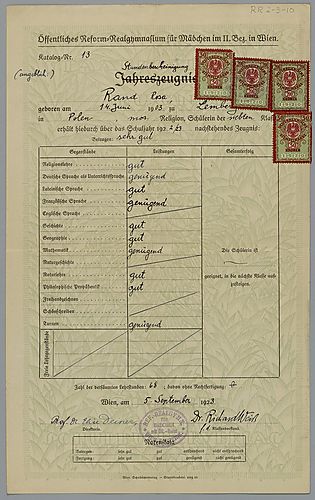 RR 2-3-10
Öffentliches Reform-Realgymnasium für Mädchen im II. Bez. in Wien.
Katalog-Nr. 13
Stundenbescheinigung
(angeblich:) Jahreszeugnis
Rand Rosa
geboren am 14. Juni 1903 zu Lemberg
in Polen mos. Religion, Schülerin der siebten
erhält hiedurch über das Schuljahr 192 nachstehendes Zeugnis:
Betragen: sehr gut
Gegenstände Leistungen Gesamterfolg
Religionslehre gut
Deutsche Sprache als Unterrichtssprache genügend
Lateinische Sprache gut
Französische Sprache genügend
Englische Sprache
Geschichte gut
Geographie gut
Mathematik genügend
Naturgeschichte
Naturlehre gut
Philosophische Propädeutik gut
Freihandzeichnen
Schönschreiben
Turnen genügend
Die Schülerin ist
geeignet, in die nächste Klasse aufzusteigen.
Freie Lehrgegenstände
Zahl der versäumten Lehrstunden: 68; davon ohne Rechtfertigung:
Wien, am 5. September 1923
Prof. Dr.
Direktorin.
Dr. Richard
Klassenvorstand.
Notenskala
Betragen: sehr gut gut entsprechend minder entsprechend nicht entsprechend
Fortgang: sehr gut gut genügend nicht genügend